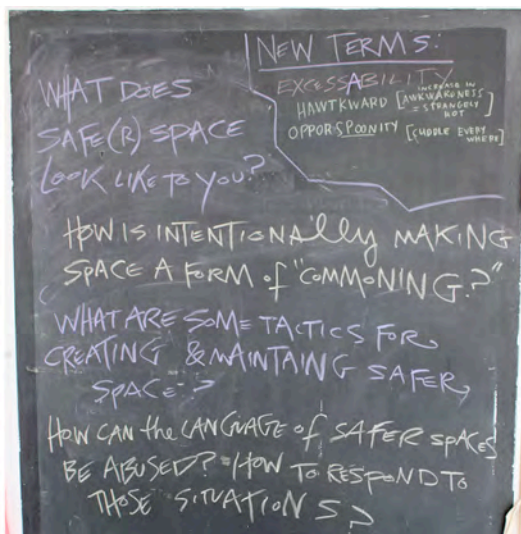 WHAT DOES
SAFE(R) SPACE
LOOK LIKE TO YOU?
NEW TERMS:
EXCESSABILITY
HAWTKWARD [INCREASE IN
AWKWARDNESS
= STRANGELY
HOT]
OPPOR-SPOONITY [CUDDLE EVERY
WHERE]
HOW IS INTENTIONAlly MAKING
SPACE A FORM of "COMMONING?"
WHAT ARE SOME TACTICS FOR
CREATING & MAINTAING SAFER
SPACE?
HOW CAN the LANGUAGE of SAFER SPACES
BE ABUSED? HOW TO RESPOND TO
THOSE SITUATIONS?